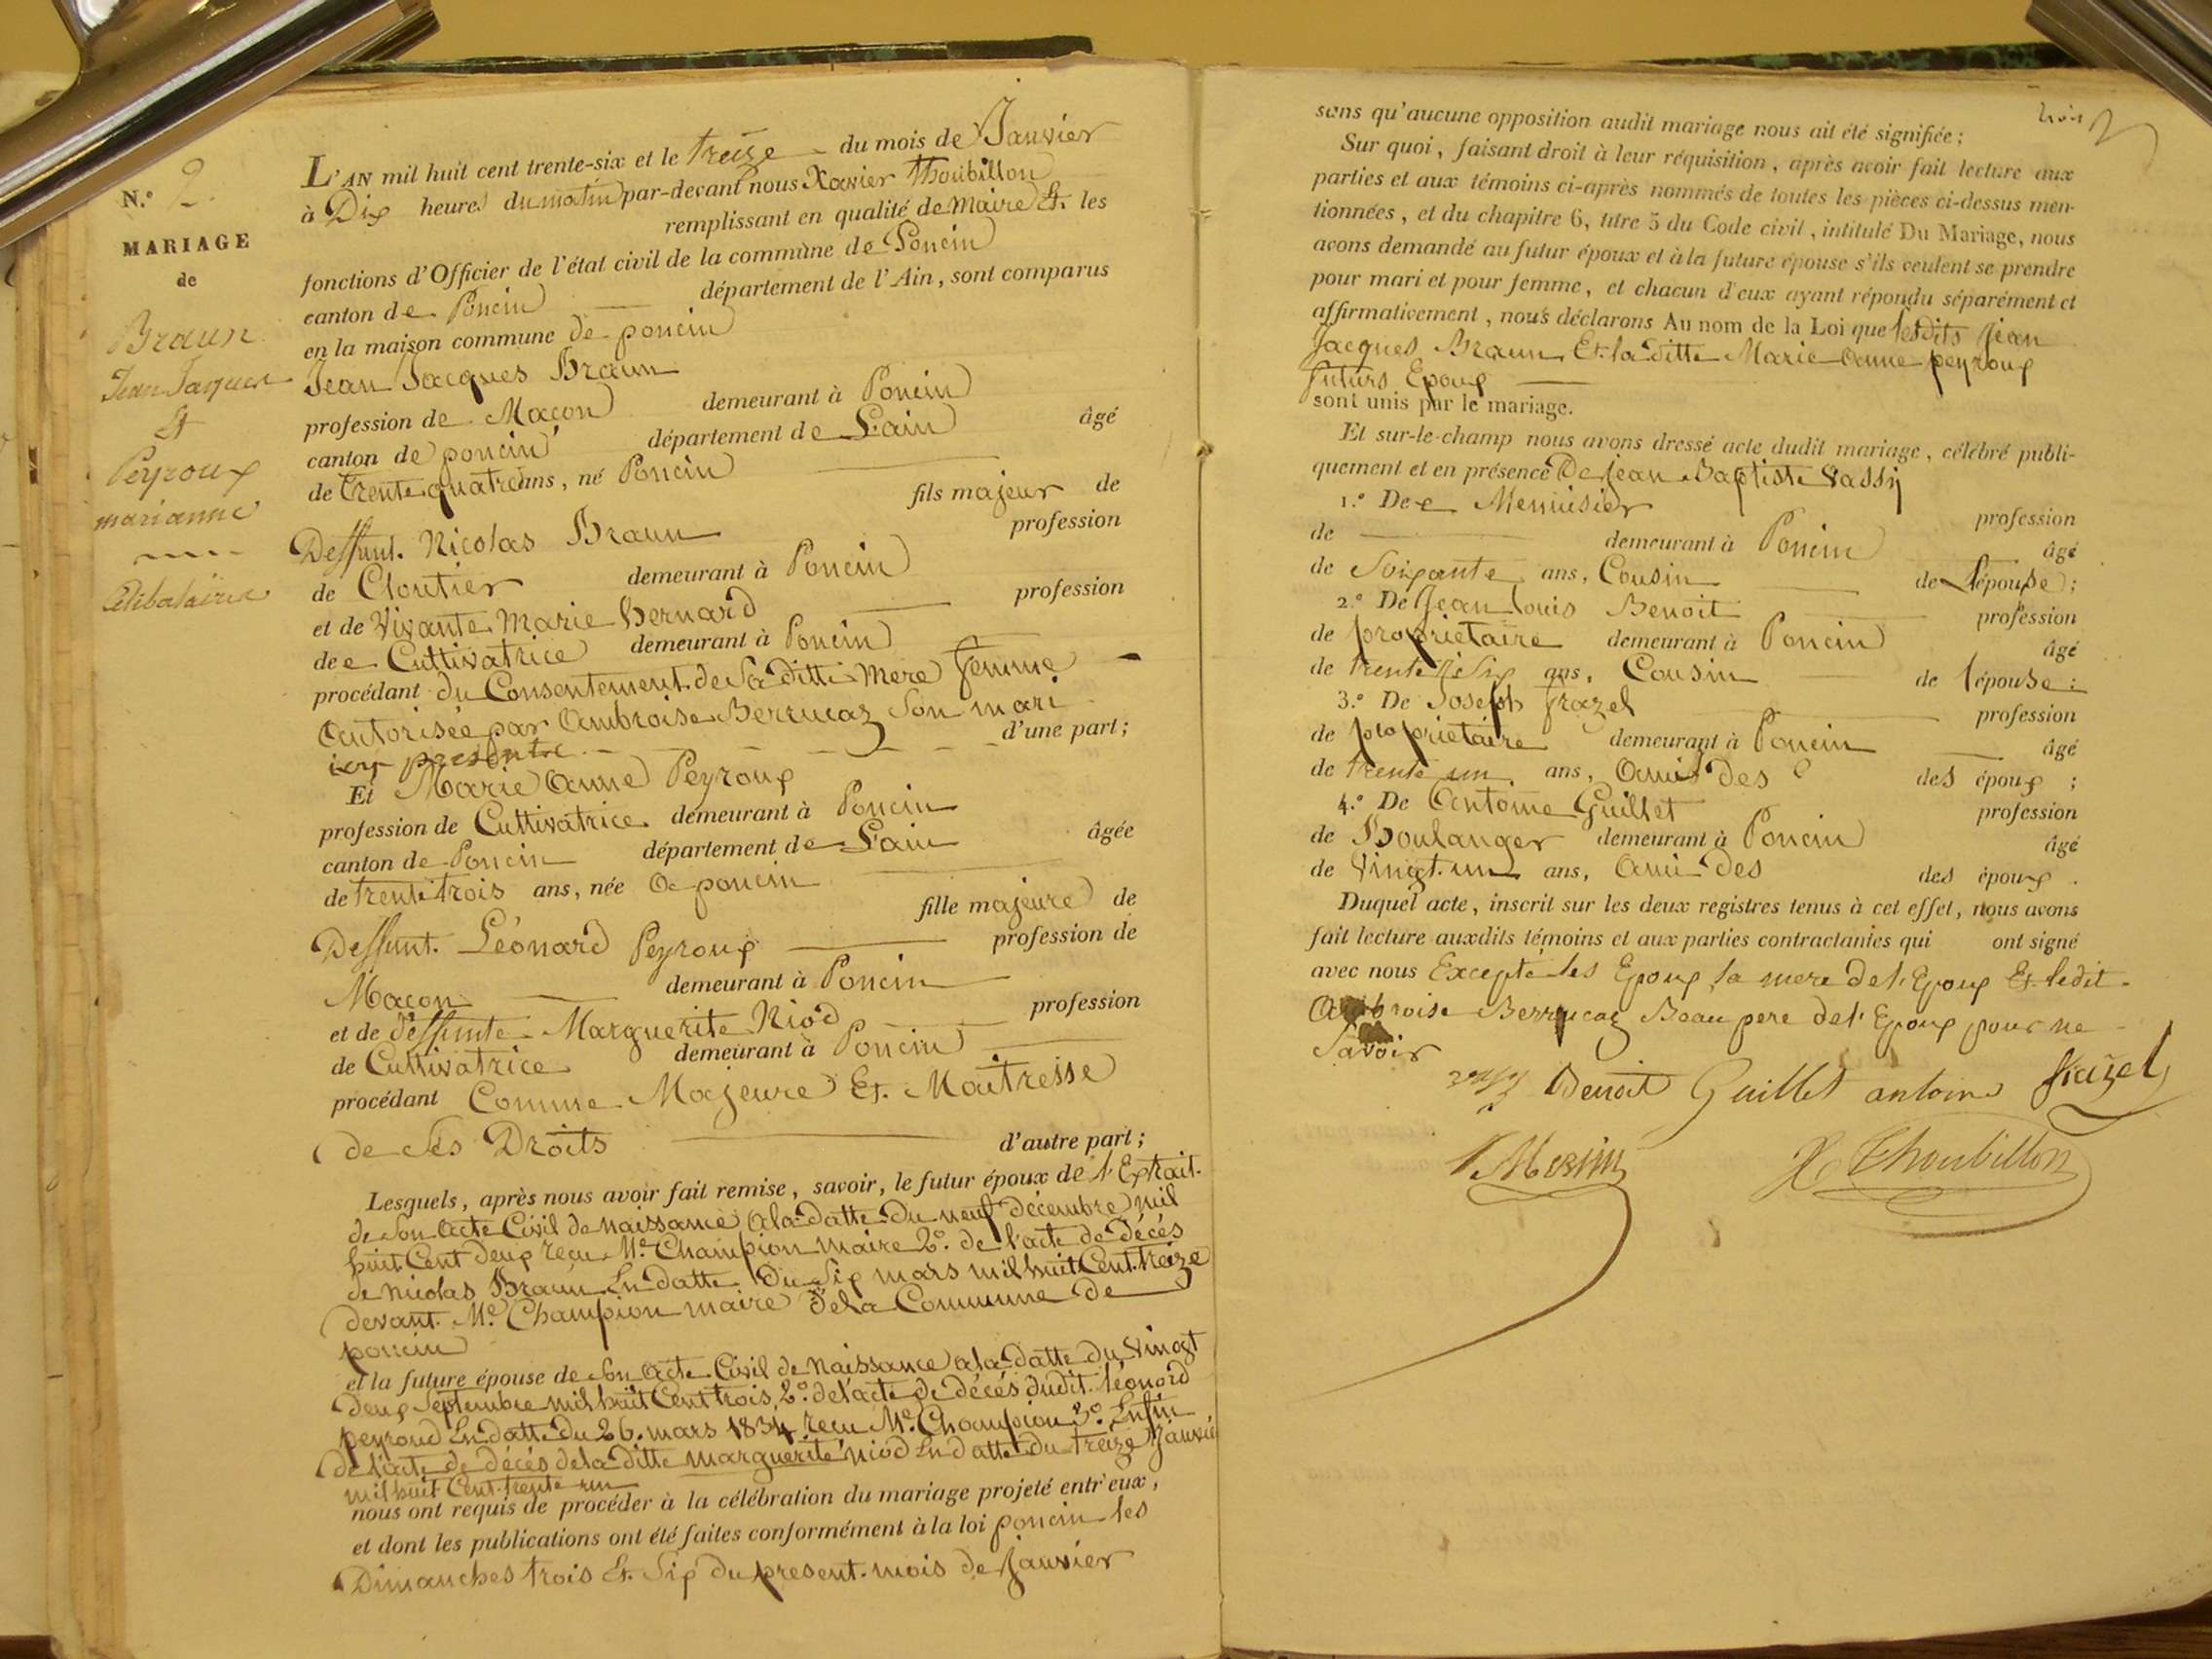 N.º 2.
MARIAGE
de
Braun
Jean Jaques
Et
Peyroux
marianne
Célibataires
L'AN mil huit cent trente-six et le treize du mois de Janvier
à Dix heures du matin par-devant nous Xavier Thoubillon
remplissant en qualité de Maire Et les
fonctions d'Officier de l'état civil de la commune de Poncin
canton de Poncin département de l'Ain, sont comparus
en la maison commune de poncin
Jean Jacques Braun
profession de Maçon demeurant à Poncin
canton de poncin département de L'ain âgé
de trente quatre ans, né Poncin
fils majeur de
Deffunt. Nicolas Braun profession
de Cloutier demeurant à Poncin
et de Vivante Marie Bernard profession
de e Cultivatrice demeurant à Poncin
procédant du Consentement de Sa ditte Mere femme
Autorisée par Ambroise Berrucaz Son mari
icy presente d'une part;
Et Marie Anne Peyroux
profession de Cultivatrice demeurant à Poncin
canton de Poncin département de L'ain âgée
de trente trois ans, née a poncin
fille majeure de
Deffunt. Léonard Peyroux profession de
Maçon demeurant à Poncin
et de deffunte Marguerite Niod profession
de Cultivatrice demeurant à Poncin
procédant Comme Majeure Et Maitresse
de Ses Droits d'autre part;
Lesquels, après nous avoir fait remise, savoir, le futur époux de l'Extrait
de Son Acte Civil de Naissance a la datte du neuf décembre mil
huit Cent deux recu Mr. Champion maire 2º. de l'acte de décés
de Nicolas Braun En datte du Six mars mil huit Cent treize
devant Mr. Champion maire de la Commune de
poncin
et la future épouse de Son Acte Civil de Naissance a la datte du Vingt
deux Septembre mil huit Cent trois, 2º. de l'acte de décés dudit léonard
peyroud En datte du 26. mars 1834 recu Mr. Champion 3º. Enfin
de l'acte de décés de la ditte marguerite niod En datte du treize Janvier
mil huit Cent trente un
nous ont requis de procéder à la célébration du mariage projeté entr'eux,
et dont les publications ont été faites conformément à la loi poncin les
Dimanches trois Et Six du present mois de Janvier
trois
sans qu'aucune opposition audit mariage nous ait été signifiée;
Sur quoi, faisant droit à leur réquisition, après avoir fait lecture aux
parties et aux témoins ci-après nommés de toutes les pièces ci-dessus men-
tionnées, et du chapitre 6, titre 5 du Code civil, intitulé Du Mariage, nous
avons demandé au futur époux et à la future épouse s'ils veulent se prendre
pour mari et pour femme, et chacun d'eux ayant répondu séparément et
affirmativement, nous déclarons Au nom de la Loi que lesdits Jean
Jacques Braun Et la ditte Marie Anne peyroux
futurs Epoux
sont unis par le mariage.
Et sur-le-champ nous avons dressé acte dudit mariage, célébré publi-
quement et en présence De Jean Baptiste Vassy
1.º De e Menuisier profession
de demeurant à Poncin âgé
de Soixante ans, Cousin de L'épouse;
2.º De Jean Louis Benoit profession
de propriétaire demeurant à Poncin âgé
de trente Six ans, Cousin de l'épouse:
3.º De Joseph frazel profession
de propriétaire demeurant à Poncin âgé
de trente un ans, Ami des des époux;
4.º De Antoine Guillet profession
de Boulanger demeurant à Poncin âgé
de Vingt un ans, Ami des des époux.
Duquel acte, inscrit sur les deux registres tenus à cet effet, nous avons
fait lecture auxdits témoins et aux parties contractantes qui ont signé
avec nous Excepté les Epoux, la mere de l'Epoux Et ledit
Ambroise Berrucaz Beau pere de l'Epoux pour ne
Savoir
Benoit Guillet antoine frazel
X Thoubillon